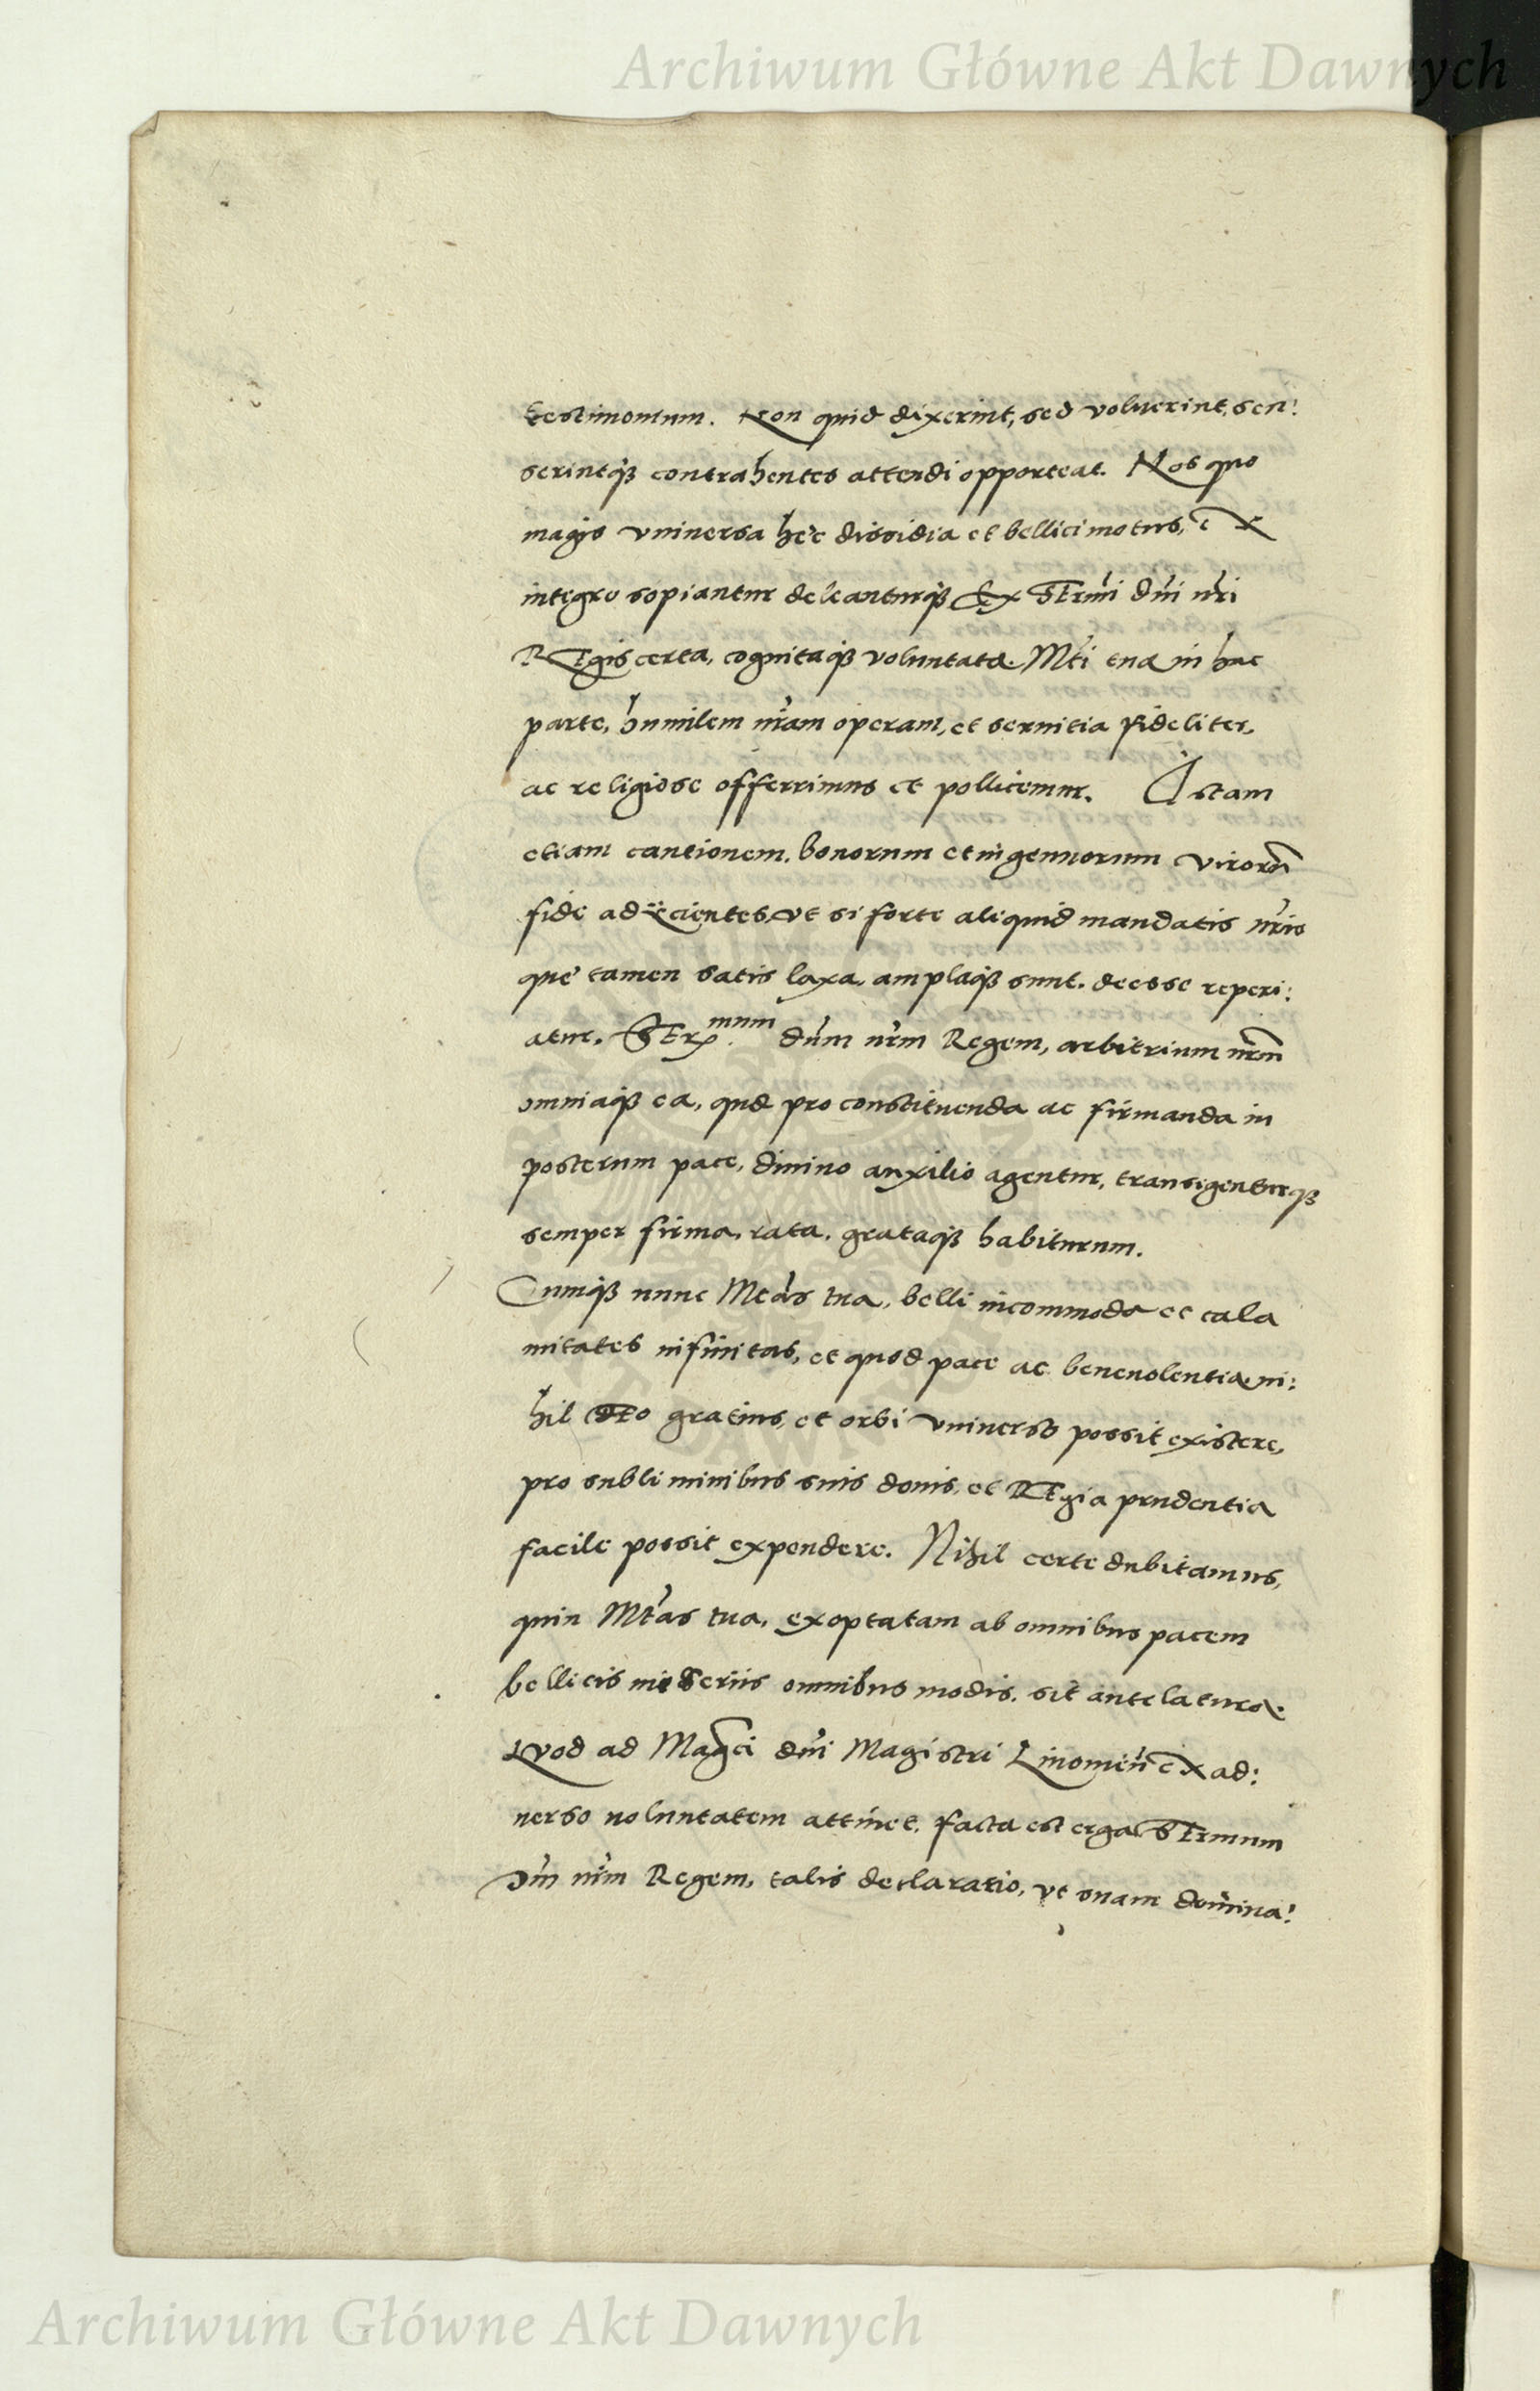 Archiwum Główne Akt Dawnych
testimonium. Non quid dixerint, sed voluerint, sen:
serintq3 contrahentes attendi opporteat. Nos quo
magis vniuersa hec dissidia et bellici motus, ex
integro sopiantur deleanturq3 Ex SErmi dni nri
REgis certa, cognitaq3 voluntate. Mti tuæ in hac
parte, humilem nram operam, et seruitia fideliter,
ac religiose offerrimus et pollicemur. Istam
etiam cautionem, bonorum et ingenuorum virorum
fide adijcientes, vt si forte aliquid mandatis nris
que tamen satis laxa, amplaq3 sunt, deesse reperi:
atur. SEr mum dnm nrm Regem, arbitrium nrm
omniaq3 ea, quæ pro constituenda ac firmanda in
posterum pace, diuino auxilio agentur, transigenturq3
semper firma, rata, grataq3 habiturum.
Cumq3 nunc Mtas tua, belli incommoda et cala
mitates infinitas, et quod pace ac beneuolentia ni:
hil DEo gratius, et orbi vniuerso possit existere,
pro subliminibus suis donis, et REgia prudentia
facile possit expendere. Nihil certe dubitamus,
quin Mtas tua, exoptatam ab omnibus pacem
bellicis miseriis omnibus modis, sit antelatura.
Quod ad Magci dni Magistri Liuonien ex ad:
uerso voluntatem attinet, facta est erga SErmum
dm nrm Regem, talis declaratio, vt suam domina:
Archiwum Główne Akt Dawnych